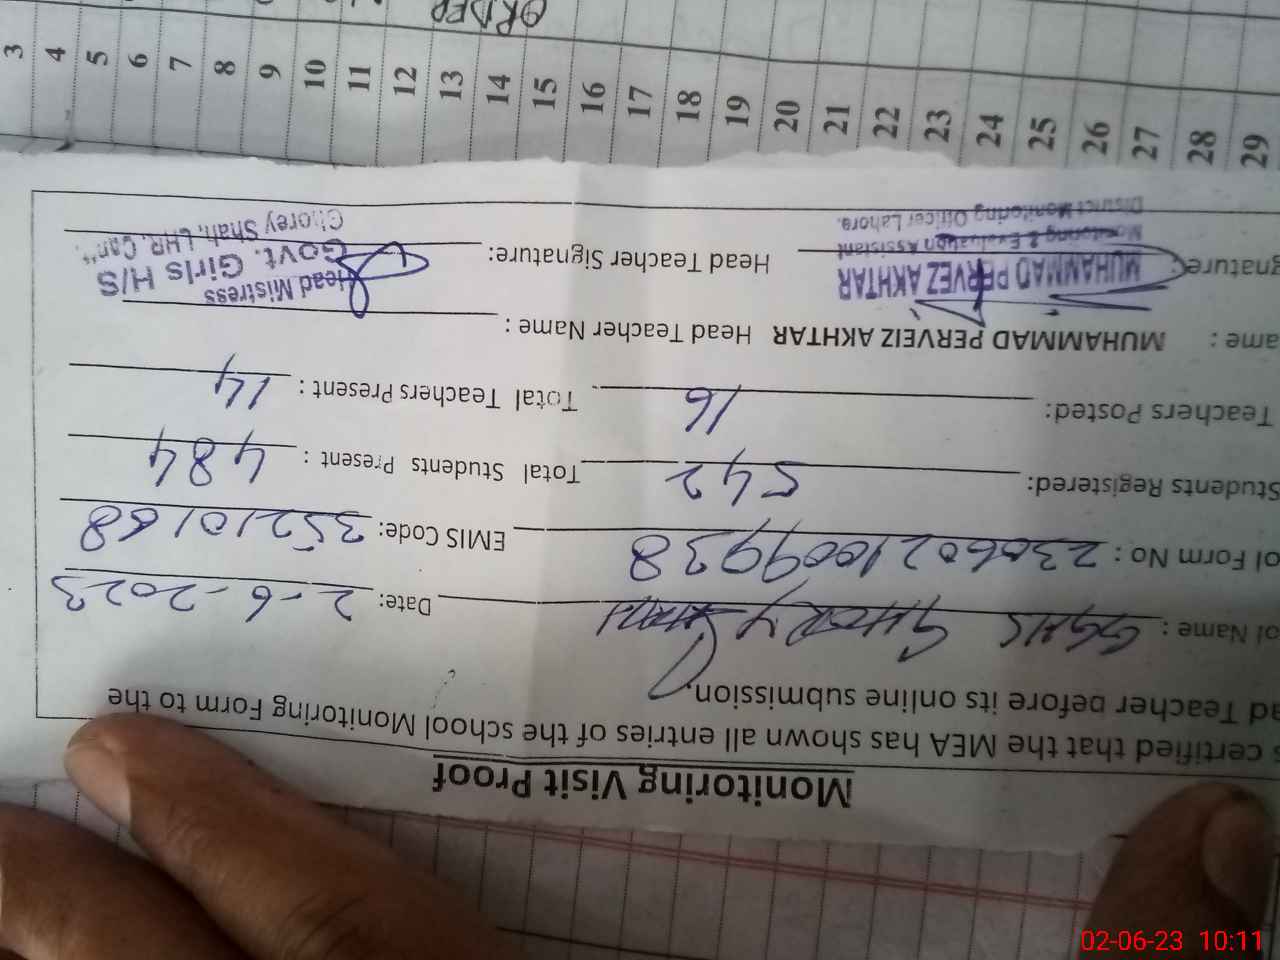 Monitoring Visit Proof
certified that the MEA has shown all entries of the school Monitoring Form to the
ad Teacher before its online submission.
ol Name : GGHS GHORY SHAH Date: 2-6-2023
ol Form No : 2306021009938 EMIS Code: 35210168
Students Registered: 542 Total Students Present : 484
Teachers Posted: 16 Total Teachers Present : 14
ame : MUHAMMAD PERVEIZ AKHTAR Head Teacher Name :
gnature: Head Teacher Signature:
MUHAMMAD PERVEZ AKHTAR
Monitoring & Evaluation Assistant
District Monitoring Officer Lahore.
Head Mistress
Govt. Girls H/S
Ghorey Shah, LHR, Cantt.
3 4 5 6 7 8 9 10 11 12 13 14 15 16 17 18 19 20 21 22 23 24 25 26 27 28 29
ORDER
02-06-23 10:11